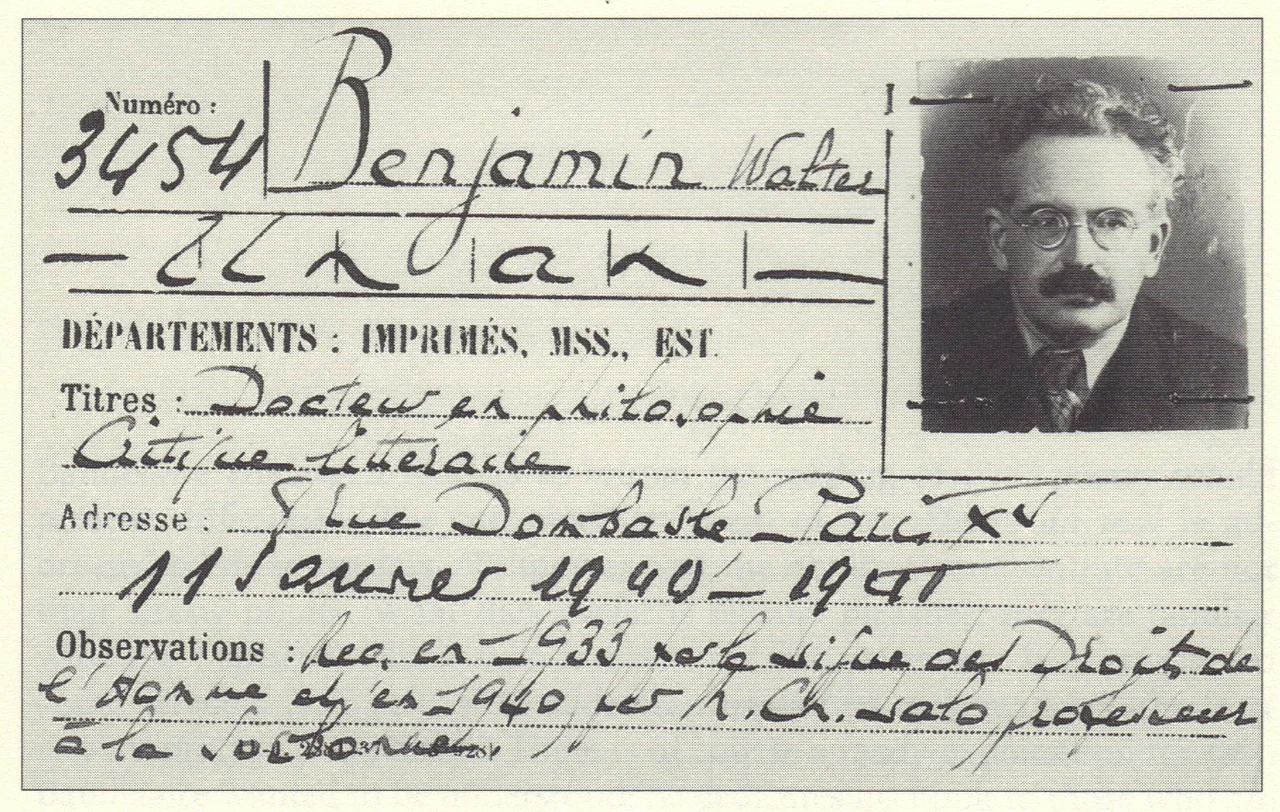 Numéro :
3454 Benjamin Walter
— Un an —
DÉPARTEMENTS : IMPRIMÉS, MSS., EST.
Titres : Docteur en philosophie
Critique littéraire
Adresse : rue Dombasle – Paris XV
11 Janvier 1940 – 1941
Observations : Rec. en 1933 par la Ligue des Droits de
l'Homme et en 1940 par M. Ch. Lalo professeur
à la Sorbonne